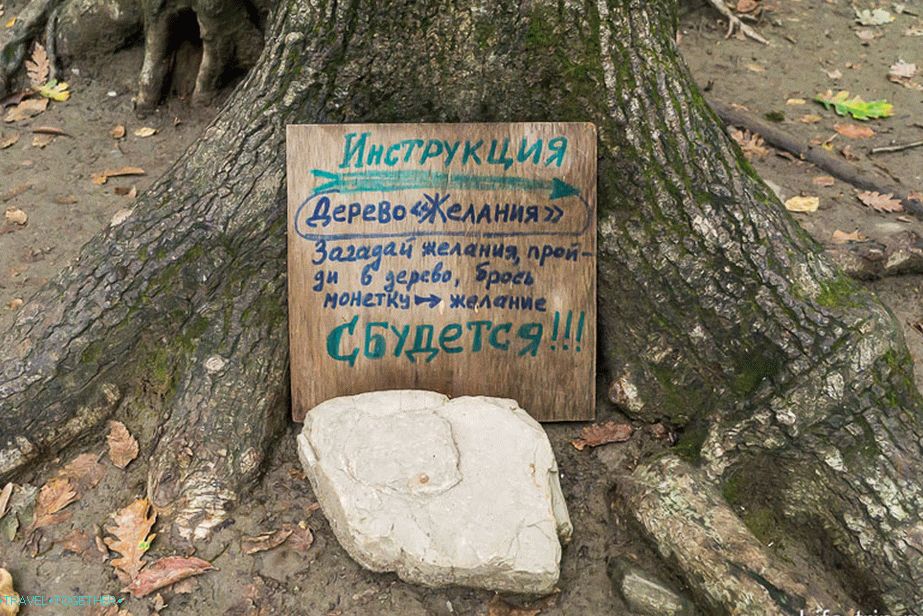 Инструкция
Дерево «Желания»
Загадай желания, прой-
ди в дерево, брось
монетку → желание
Сбудется!!!
TRAVEL•TOGETHER